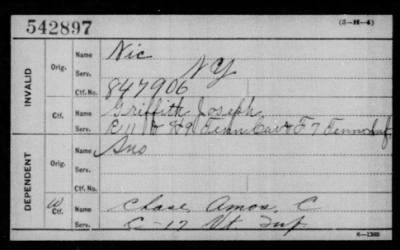 542897
(3-H-4)
INVALID
Orig.
Name Nic
Serv. NY
Ctf. No. 847906
Ctf.
Name Griffith Joseph
Serv. & H 9 Tenn Cav & F 7 Tenn Inf
DEPENDENT
Orig.
Name Ano
Serv.
Ctf. No.
W
Ctf.
Name Chase, Amos, C
Serv. C-17 Vt Inf
6-1380